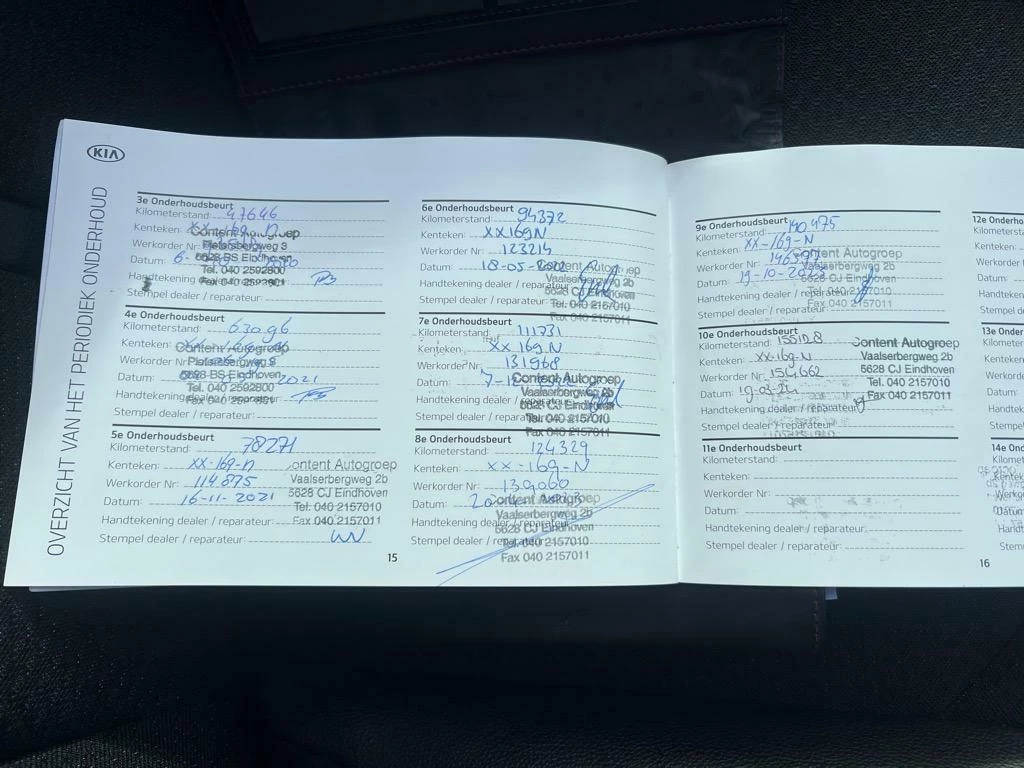 KIA
OVERZICHT VAN HET PERIODIEK ONDERHOUD
3e Onderhoudsbeurt
Kilometerstand: 47646
Kenteken: XX-169-N
Content Autogroep
Werkorder Nr:
Pietersbergweg 9
5628 BS Eindhoven
Datum: 6-
Tel. 040 2592800
Handtekening dealer / reparateur:
Stempel dealer / reparateur:
4e Onderhoudsbeurt
Kilometerstand: 63096
Kenteken:
Content Autogroep
Werkorder Nr:
Pietersbergweg 9
5628 BS Eindhoven
Datum: 2021
Tel. 040 2592800
Handtekening dealer / reparateur:
Stempel dealer / reparateur:
5e Onderhoudsbeurt
Kilometerstand: 78271
Kenteken: XX-169-N
Content Autogroep
Werkorder Nr: 114875
Vaalserbergweg 2b
Datum: 16-11-2021
5628 CJ Eindhoven
Tel: 040 2157010
Handtekening dealer / reparateur:
Fax 040 2157011
Stempel dealer / reparateur:
6e Onderhoudsbeurt
Kilometerstand: 94372
Kenteken: XX169N
Werkorder Nr: 123214
Datum: 18-05-2022
Content Autogroep
Vaalserbergweg 2b
Handtekening dealer / reparateur:
5628 CJ Eindhoven
Stempel dealer / reparateur:
Tel. 040 2157010
Fax 040 2157011
7e Onderhoudsbeurt
Kilometerstand: 111731
Kenteken: XX169N
Werkorder Nr: 131968
Datum: 7-12-
Content Autogroep
Vaalserbergweg 2b
Handtekening dealer / reparateur:
5628 CJ Eindhoven
Stempel dealer / reparateur:
Tel. 040 2157010
Fax 040 2157011
8e Onderhoudsbeurt
Kilometerstand: 124329
Kenteken: XX-169-N
Werkorder Nr: 139060
Datum:
Content Autogroep
Vaalserbergweg 2b
Handtekening dealer / reparateur:
5628 CJ Eindhoven
Stempel dealer / reparateur:
Tel. 040 2157010
Fax 040 2157011
15
9e Onderhoudsbeurt
Kilometerstand: 140475
Kenteken: XX-169-N
Content Autogroep
Werkorder Nr:
Vaalserbergweg 2b
Datum: 19-10-2023
5628 CJ Eindhoven
Handtekening dealer / reparateur:
Tel. 040 2157010
Stempel dealer / reparateur:
Fax 040 2157011
10e Onderhoudsbeurt
Kilometerstand: 155128
Content Autogroep
Kenteken: XX-169-N
Vaalserbergweg 2b
Werkorder Nr: 154662
5628 CJ Eindhoven
Datum:
Tel. 040 2157010
Handtekening dealer / reparateur:
Fax 040 2157011
Stempel dealer / reparateur:
11e Onderhoudsbeurt
Kilometerstand:
Kenteken:
Werkorder Nr:
Datum:
Handtekening dealer / reparateur:
Stempel dealer / reparateur:
16
12e Onder
Kilometersta
Kenteken:
Werkorder
Datum:
Handteken
Stempel de
13e Onder
Kilometers
Kenteken
Werkord
Datum:
Handte
Stempe
14e On
Kilome
Werko
Datum
Handt
Stem